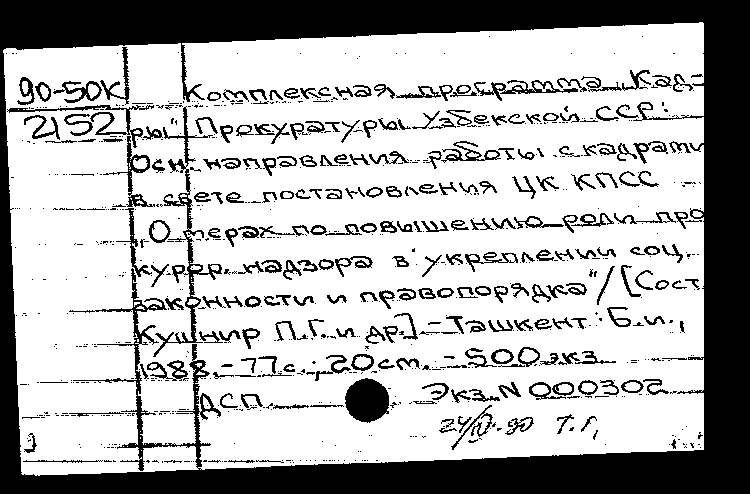 90-50К Комплексная программа „Кад-
2152 ры" Прокуратуры Узбекской ССР:
Осн. направления работы с кадрами
в свете постановления ЦК КПСС
„О мерах по повышению роли про
курор. надзора в укреплении соц.
законности и правопорядка"/[Сост.
Кушнир П.Г. и др.].-Ташкент: Б.и.,
1988.-77с.; 20см.-500экз.
ДСП. Экз. N 000302
24/IV-90 Т.Г,